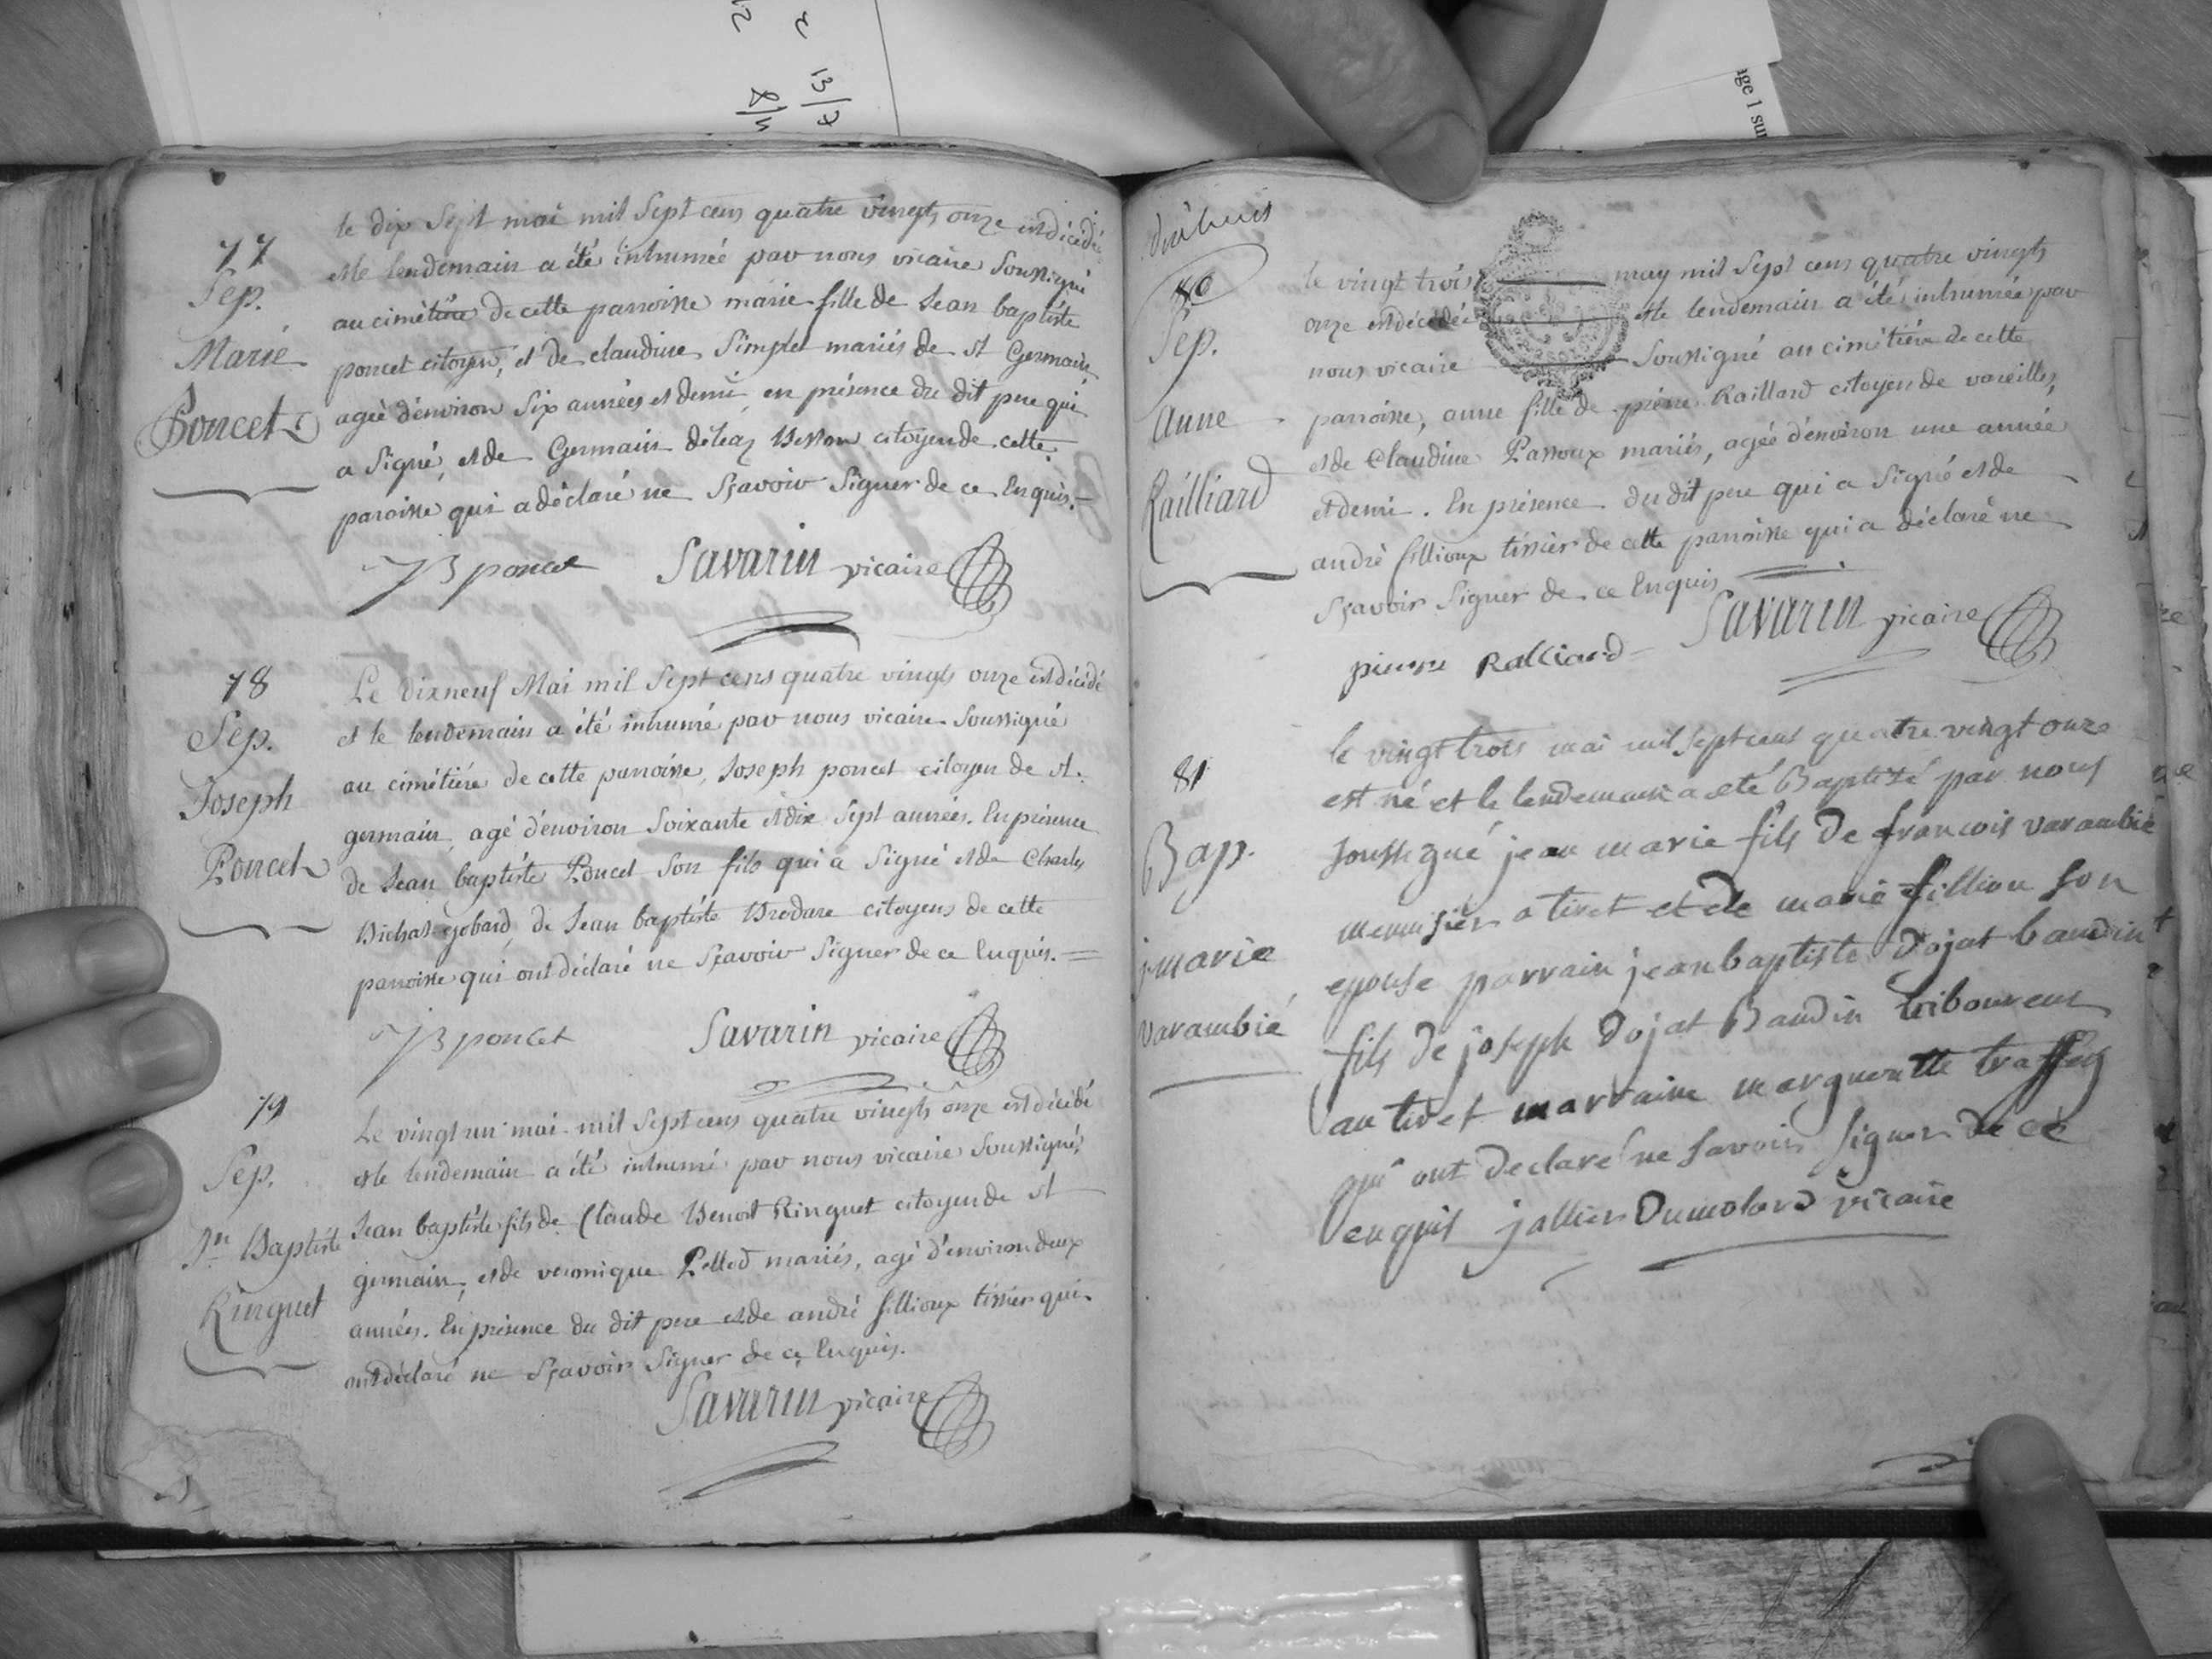 77
Sep.
Marie
Poncet
le dix Sept mai mil Sept cens quatre vingts onze est décédée
et le lendemain a été inhumée par nous vicaire Soussigné
au cimétiére de cette parroisse marie fille de Jean baptiste
poncet citoyen, et de claudine Simplet mariés de st Germain
ageé d'environ Six années et demi, en présence du dit pere qui
a Signé, et de Germain déléaz Besson citoyen de cette
paroisse qui a déclaré ne Sçavoir Signer de ce Enquis.
JB poncet Savarin vicaire
78
Sep.
Joseph
Poncet
Le dixneuf Mai mil Sept cens quatre vingts onze est décédé
et le lendemain a été inhumé par nous vicaire Soussigné
au cimétiére de cette parroisse, Joseph poncet citoyen de st
germain, agé d'environ Soixante et dix Sept années. En présence
de Jean baptiste Poncet Son fils qui a Signé et de Charles
Bichat gobard, de Jean baptiste Brodare citoyens de cette
parroisse qui ont déclaré ne Sçavoir Signer de ce Enquis.
JB poncet Savarin vicaire
79
Sep.
Jn Baptiste
Ringuet
Le vingt un mai mil Sept cens quatre vingts onze est décédé
et le lendemain a été inhumé par nous vicaire Soussigné,
Jean baptiste fils de Claude Benoit Ringuet citoyen de st
germain, et de veronique Pellod mariés, agé d'environ deux
années. En présence du dit pere et de andré fillioux tissier qui
ont déclaré ne Sçavoir Signer de ce Enquis.
Savarin vicaire
dixhuit
80
Sep.
Anne
Railliard
le vingt trois may mil Sept cens quatre vingts
onze est décédée et le lendemain a été inhumée par
nous vicaire Soussigné au cimétiére de cette
parroisse, anne fille de pierre Raillard citoyen de vareilles,
et de Claudine Passoux mariés, agée d'environ une année
et demi. En présence du dit pere qui a Signé et de
andré fillioux tissier de cette parroisse qui a déclaré ne
Sçavoir Signer de ce Enquis
pierre Ralliard Savarin vicaire
81
Bap.
j marie
varambié
le vingt trois mai mil sept cens quatre vingt onze
est né et le lendemain a eté Baptisé par nous
soussigné jean marie fils de francois varambié
menusier a tiret et de marie fillion son
epouse parrain jean baptiste dojat baudin
fils de joseph dojat Baudin
au tiret marraine margueritte traffey
qui ont declaré ne savoir signer de ce
enquis jallier Dumolard vicaire
13/7
8/11
age 1 sur